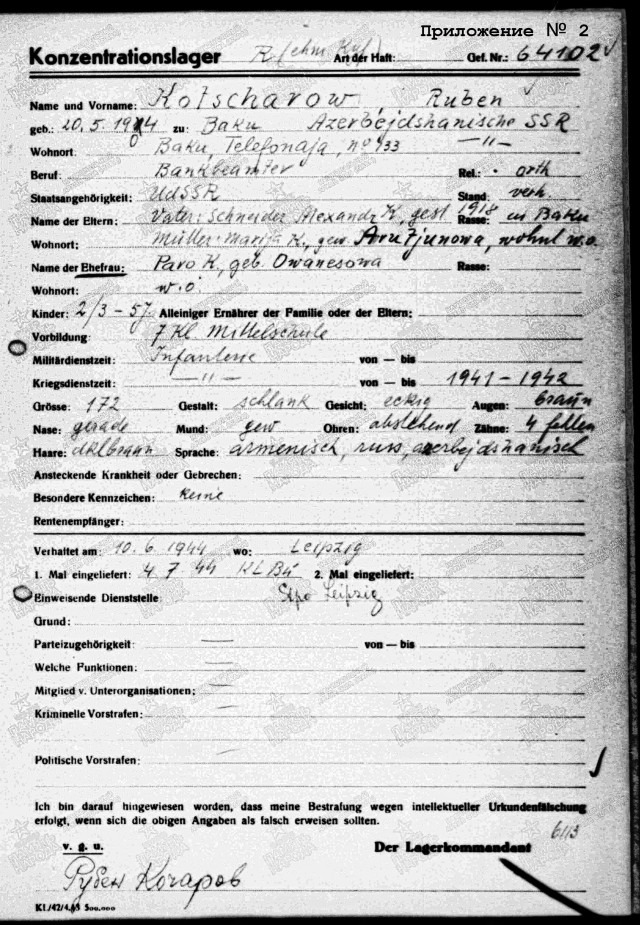 Приложение № 2
Konzentrationslager R (ehm. Kgf.) Art der Haft: Gef. Nr.: 64102
Name und Vorname: Kotscharow Ruben
geb.: 20.5.1914 zu: Baku Azerbejdshanische SSR
Wohnort: Baku, Telefonaja, № 133 —"—
Beruf: Bankbeamter Rel.: orth
Staatsangehörigkeit: UdSSR Stand: verh.
Name der Eltern: Vater: Schneider Alexandr K, gest. 1918 in Baku Rasse:
Wohnort: Mutter: Marija K., gew. wohnt w.o.
Name der Ehefrau: Paro K, geb. Owanesowa Rasse:
Wohnort: w.o.
Kinder: 2/3-5J. Alleiniger Ernährer der Familie oder der Eltern:
Vorbildung: 7 Kl. Mittelschule
Militärdienstzeit: Infanterie von — bis
Kriegsdienstzeit: —"— von — bis 1941-1942
Grösse: 172 Gestalt: schlank Gesicht: eckig Augen: braun
Nase: gerade Mund: gew Ohren: abstehend Zähne: 4 fehlen
Haare: dklbraun Sprache: armenisch, russ, azerbejdshanisch
Ansteckende Krankheit oder Gebrechen:
Besondere Kennzeichen: keine
Rentenempfänger:
Verhaftet am: 10.6.1944 wo: Leipzig
1. Mal eingeliefert: 4.7.44 KLBu 2. Mal eingeliefert:
Einweisende Dienststelle: Stpo Leipzig
Grund:
Parteizugehörigkeit von — bis
Welche Funktionen:
Mitglied v. Unterorganisationen:
Kriminelle Vorstrafen:
Politische Vorstrafen:
Ich bin darauf hingewiesen worden, dass meine Bestrafung wegen intellektueller Urkundenfälschung
erfolgt, wenn sich die obigen Angaben als falsch erweisen sollten.
v. g. u. Der Lagerkommandant
Рубен Кочаров
KL/42/4.43 500.000